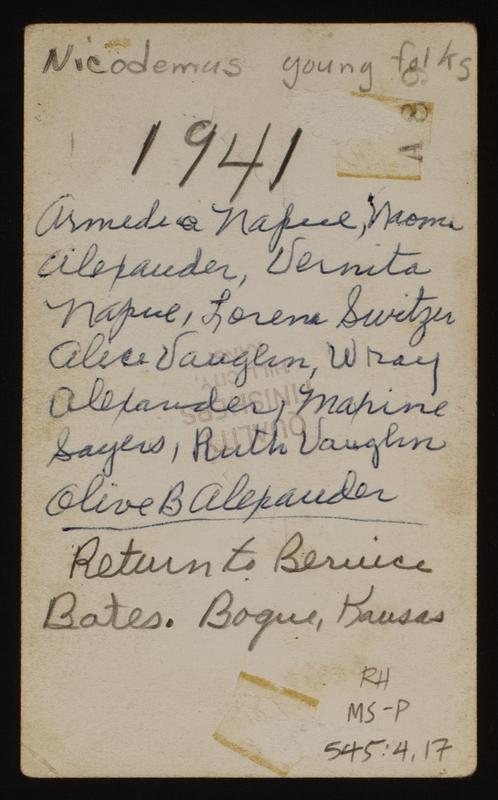 Nicodemus young folks
A 8 8
1941
Armedia Napue, Naomi
Alexander, Vernita
Napue, Lorena Switzer
Alice Vaughn, Wray
Alexander, Maxine
Sayers, Ruth Vaughn
Olive B Alexander
QUALITY
FINISHERS
HILL CITY,
Return to Bernice
Bates. Bogue, Kansas
RH
MS-P
545:4.17